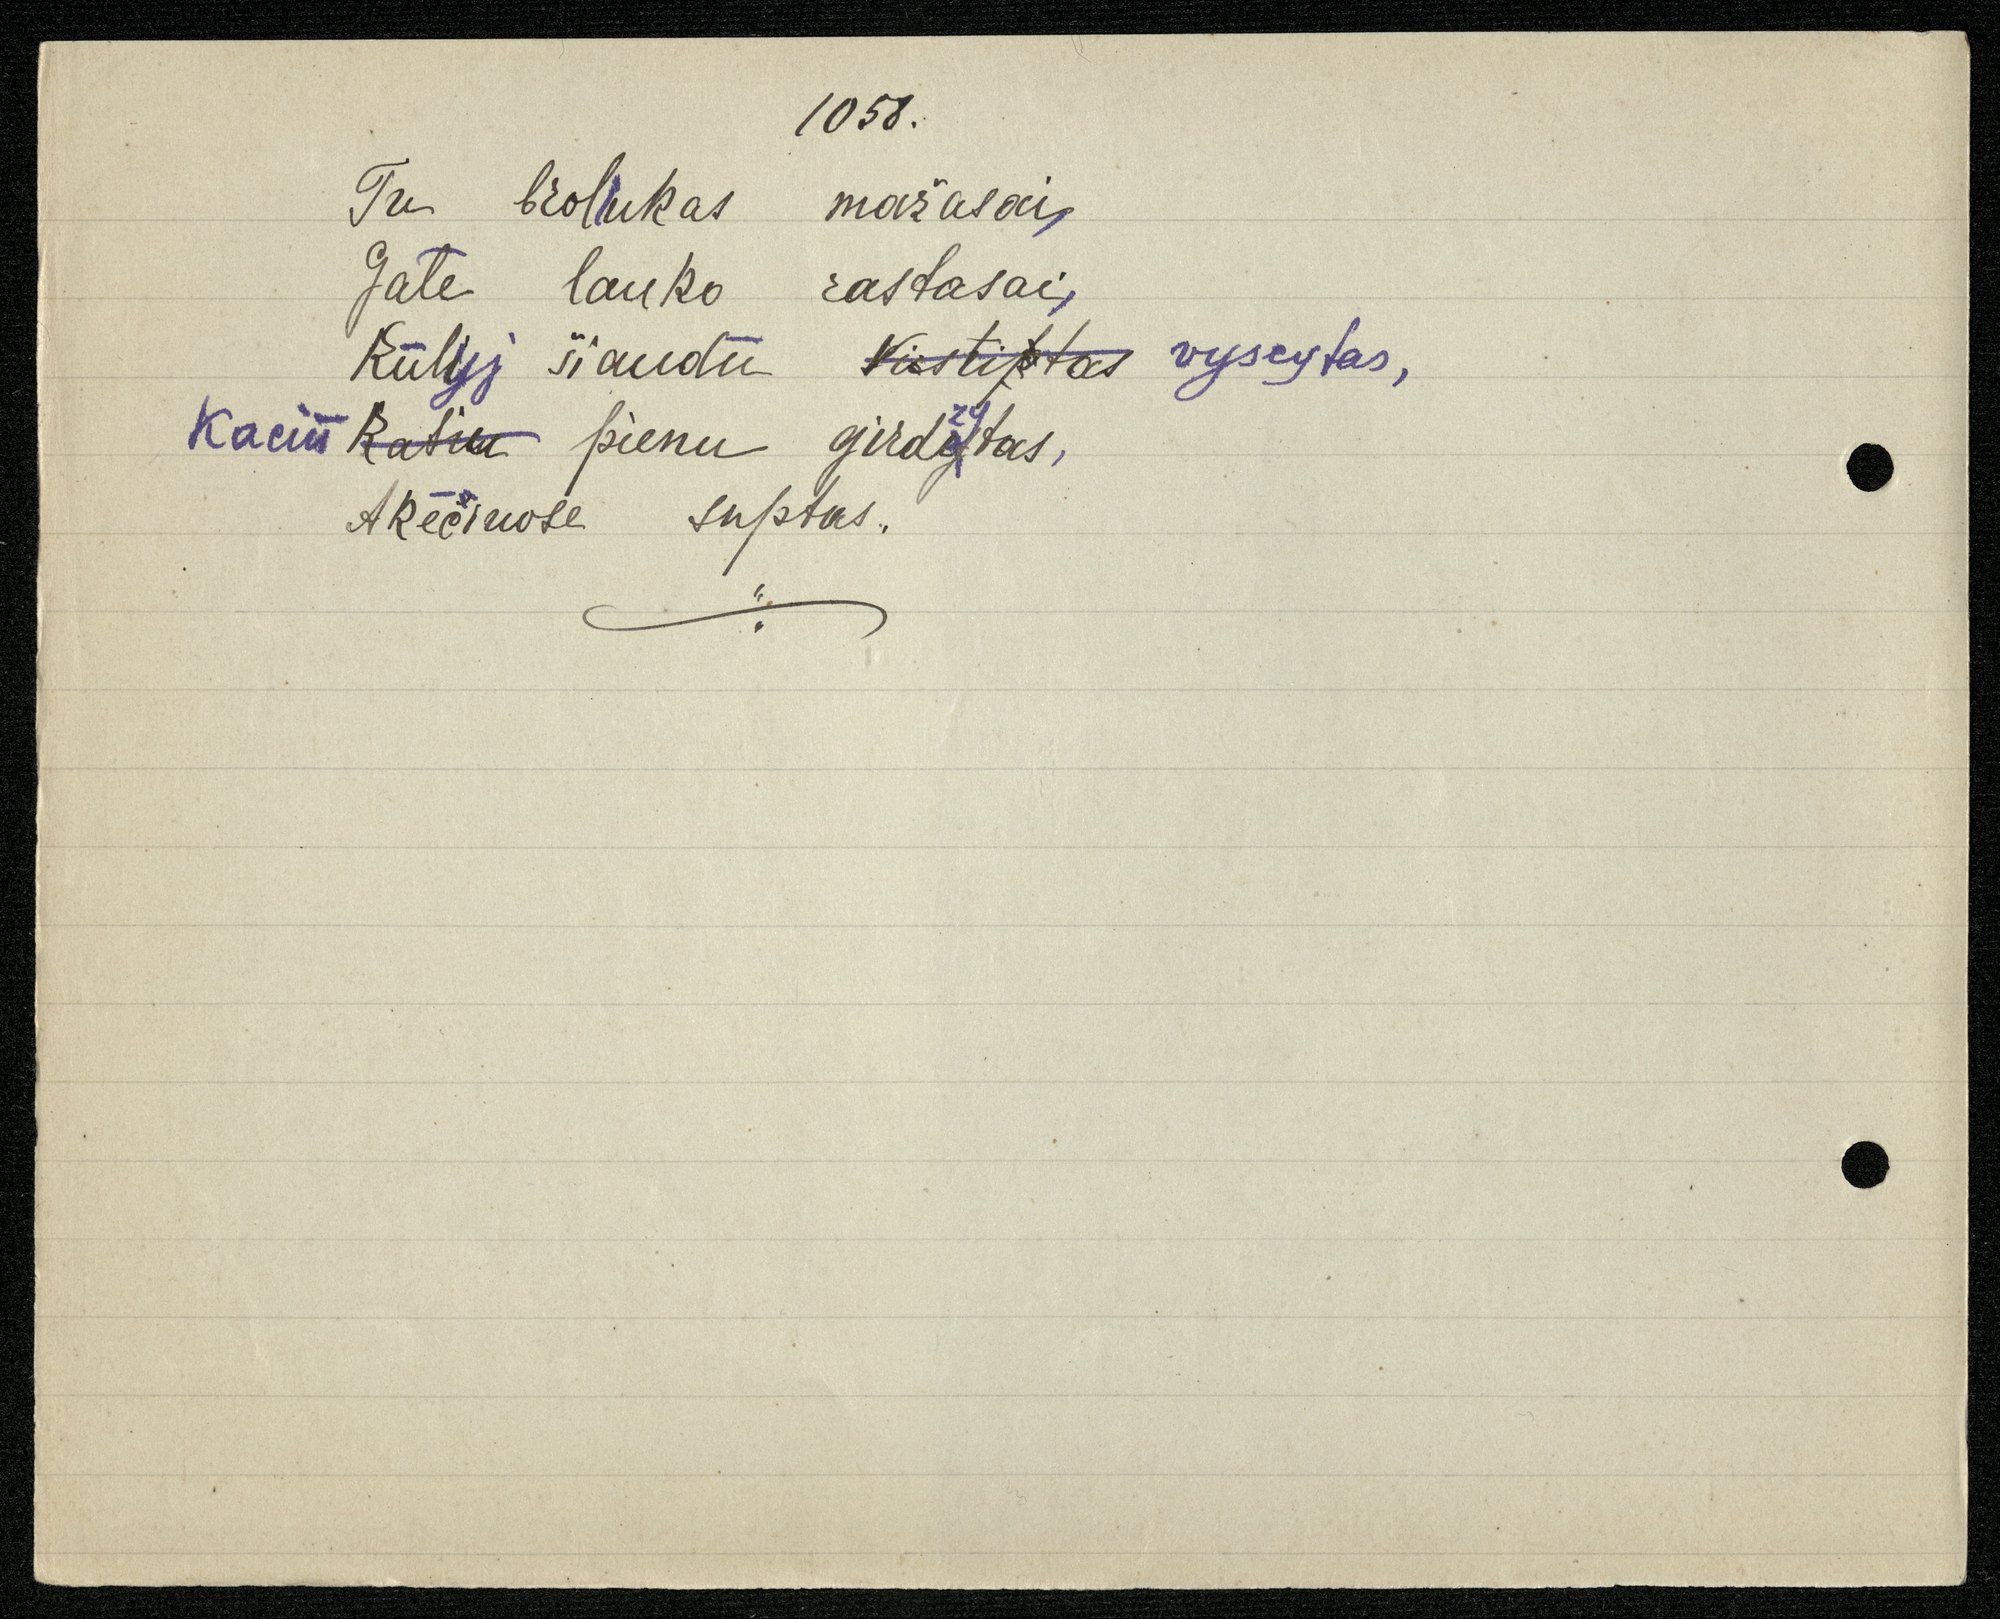 1058.
Tu broliukas mažasai,
Gale lauko rastasai,
Kūlyj šiaudū vystiptas vyscytas,
Kaciū Katiu pienu girdžytas,
Akēčiuose suptas.